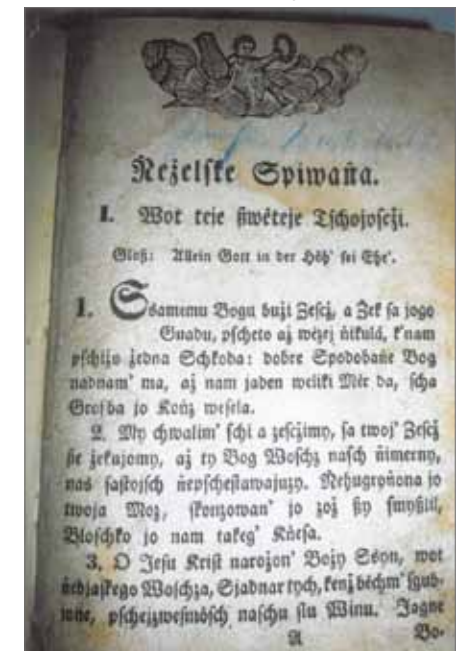 Neźelske Spiwańa.
I. Wot teie ßwěteje Tschojoscźi.
Gloß: Allein Gott in der Höh' sei Ehr'.
1. Ssamemu Bogu buźi Zescź, a Źek sa jogo
Gnadu, pscheto aź wězej ńikula, k'nam
pschiźo źedna Schkoda: dobre Spodobańe Bog
nadnam' ma, aź nam jaden weliki Měr da, scha
Grosba jo Końz wesela.
2. My chwalim' schi a zescźimy, sa twoj' Zescź
ße źekujomy, aź ty Bog Woschz nasch ńimerny,
nas sastojsch ńepschestawajuzy. Nehugrońona jo
twoja Moz, skonzowan' jo zoź ßy smyßlil,
Bloschko jo nam takeg' Kńesa.
3. O Jesu Krist narojon' Boźy Ssyn, wot
ńebjaskego Woschza, Sjadnar tych, kenź běchm' sgub-
wone, pschejzwesmósch naschu slu Winu. Jagne
A Bo-